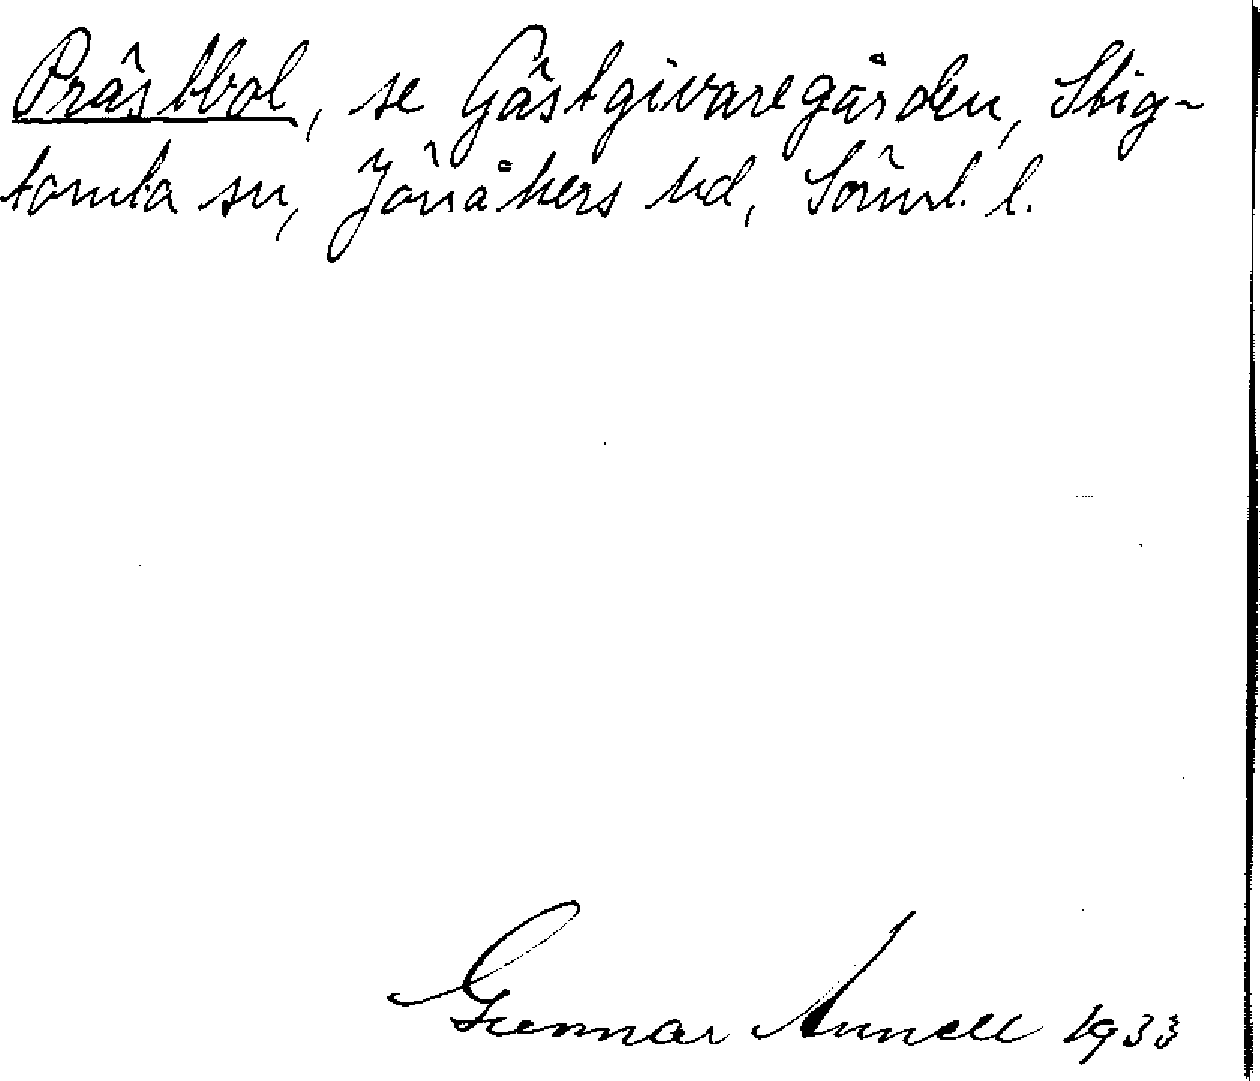 Prästbol, se Gästgivaregården, Stig-
tomta sn, Jönåkers hd, Sörml. l.
Gunnar Annell 1933